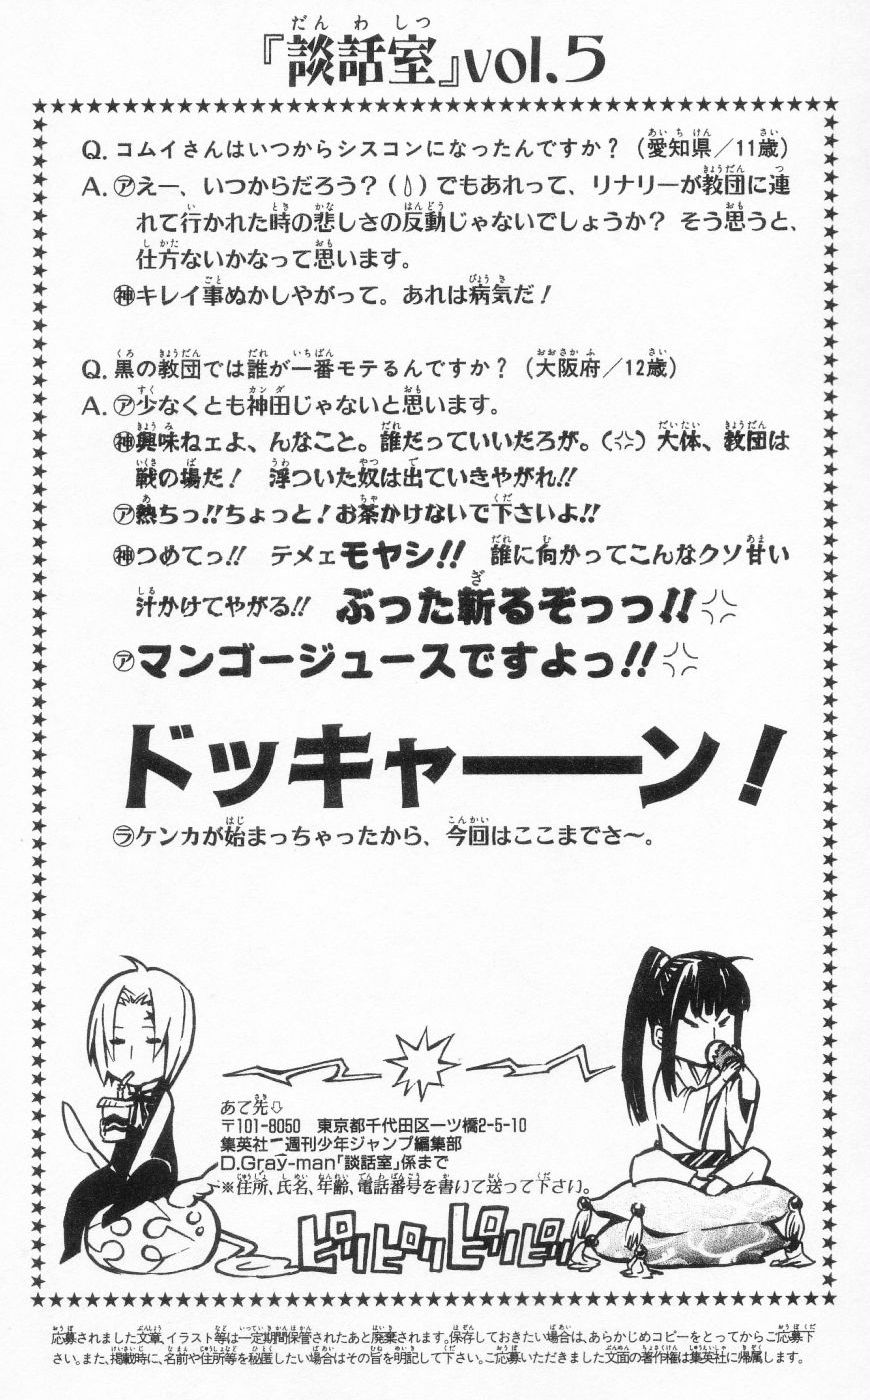 『談話室』vol.5
Q. コムイさんはいつからシスコンになったんですか？（愛知県／11歳）
A. ㋐えー、いつからだろう？（💧）でもあれって、リナリーが教団に連
れて行かれた時の悲しさの反動じゃないでしょうか？ そう思うと、
仕方ないかなって思います。
㊙キレイ事ぬかしやがって。あれは病気だ！
Q. 黒の教団では誰が一番モテるんですか？（大阪府／12歳）
A. ㋐少なくとも神田じゃないと思います。
神興味ねェよ、んなこと。誰だっていいだろが。（💢）大体、教団は
戦の場だ！ 浮ついた奴は出ていきやがれ!!
㋐熱ちっ!!ちょっと！お茶かけないで下さいよ!!
神つめてっ!! テメェモヤシ!! 誰に向かってこんなクソ甘い
汁かけてやがる!! ぶった斬るぞっっ!!💢
㋐マンゴージュースですよっ!!💢
ドッキャーーン！
㋶ケンカが始まっちゃったから、今回はここまでさ〜。
あて先⇩
〒101-8050 東京都千代田区一ツ橋2-5-10
集英社 週刊少年ジャンプ編集部
D.Gray-man「談話室」係まで
※住所、氏名、年齢、電話番号を書いて送って下さい。
ピリピリピリピリ
応募されました文章、イラスト等は一定期間保管されたあと廃棄されます。保存しておきたい場合は、あらかじめコピーをとってからご応募下
さい。また、掲載時に、名前や住所等を秘匿したい場合はその旨を明記して下さい。ご応募いただきました文面の著作権は集英社に帰属します。